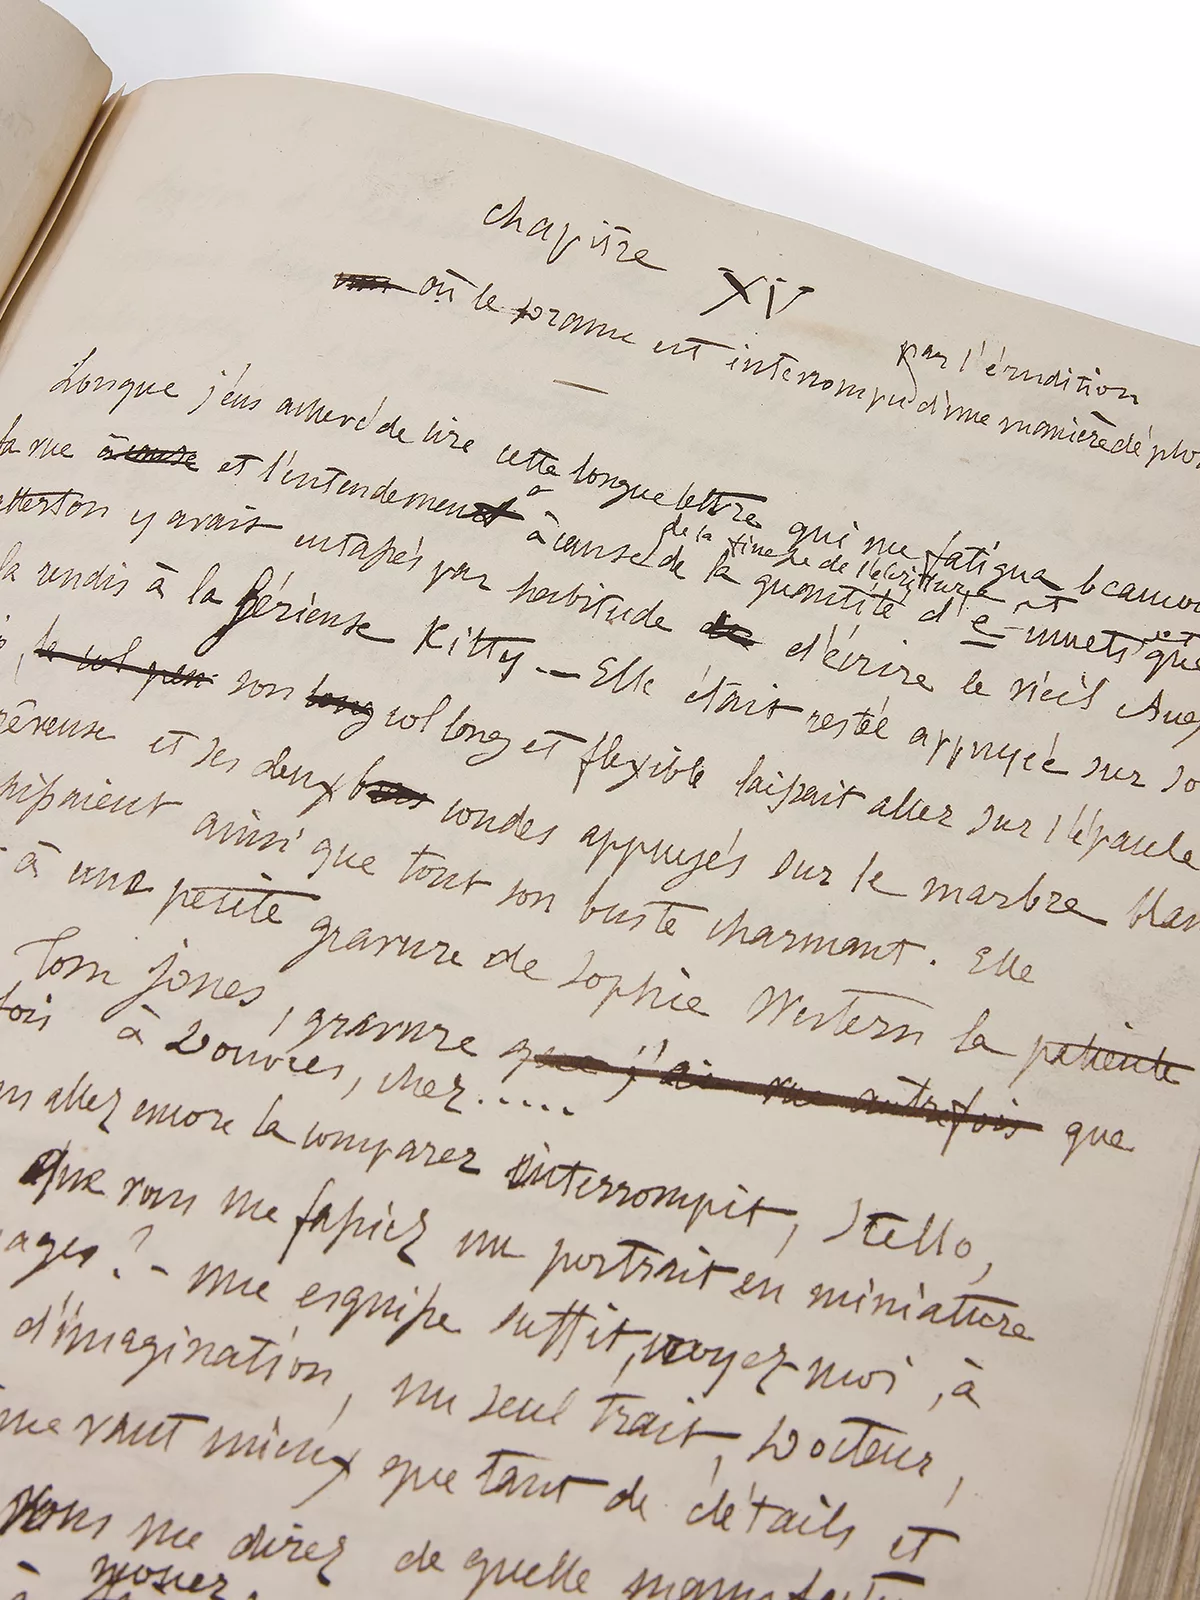 chapitre XV
où le drame est interrompu par l'érudition
d'une manière déplo
Lorsque j'eus achevé de lire cette longue lettre qui me fatigua beaucou
la vue à cause et l'entendement à cause de la finesse de l'écriture et
de la quantité d'e muets que
atterton y avait entassés par habitude de d'écrire le vieil Ang
la rendis à la sérieuse Kitty — Elle était restée appuyée sur so
, le col pen son long col long et flexible laissait aller sur l'épaule
rêveuse et ses deux bras coudes appuyés sur le marbre blan
ainsi que tout son buste charmant. Elle
à une petite gravure de Sophie Western la patiente
Tom jones, gravure que j'ai vue autrefois que
fois à Douvres, chez.....
allez encore la comparer interrompit, Stello,
que vous me fassiez un portrait en miniature
ages ? — une esquisse suffit, croyez-moi, à
d'imagination, un seul trait, Docteur,
me vaut mieux que tant de détails et
Vous me direz de quelle manufacture
à nouer